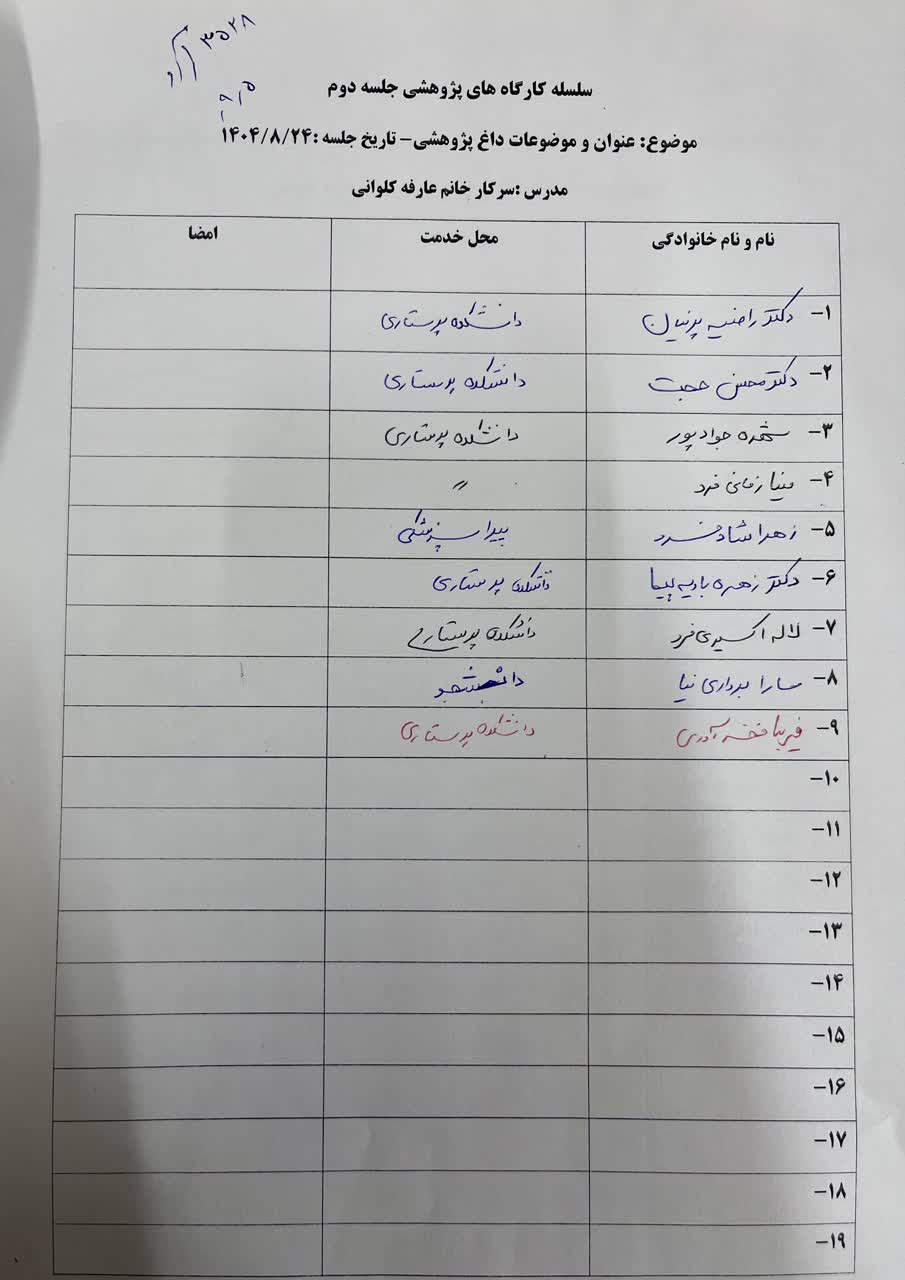 ۳۵۲۸
سلسله کارگاه های پژوهشی جلسه دوم
موضوع: عنوان و موضوعات داغ پژوهشی- تاریخ جلسه :۱۴۰۴/۸/۲۴
مدرس :سرکار خانم عارفه کلوانی
نام و نام خانوادگی محل خدمت امضا
۱- دکتر راضیه پرنیان دانشکده پرستاری
۲- دکتر محسن حجت دانشکده پرستاری
۳- جوادپور دانشکده پرستاری
۴- مینا زمانی فرد 〃
۵- زهرا شادفرد پیراپزشکی
۶- دکتر زهره بادیه پیما دانشکده پرستاری
۷- لاله اکسیری فرد دانشکده پرستاری
۸- سارا برداری نیا دانشجو
۹- فریبا دانشکده پرستاری
۱۰-
۱۱-
۱۲-
۱۳-
۱۴-
۱۵-
۱۶-
۱۷-
۱۸-
۱۹-